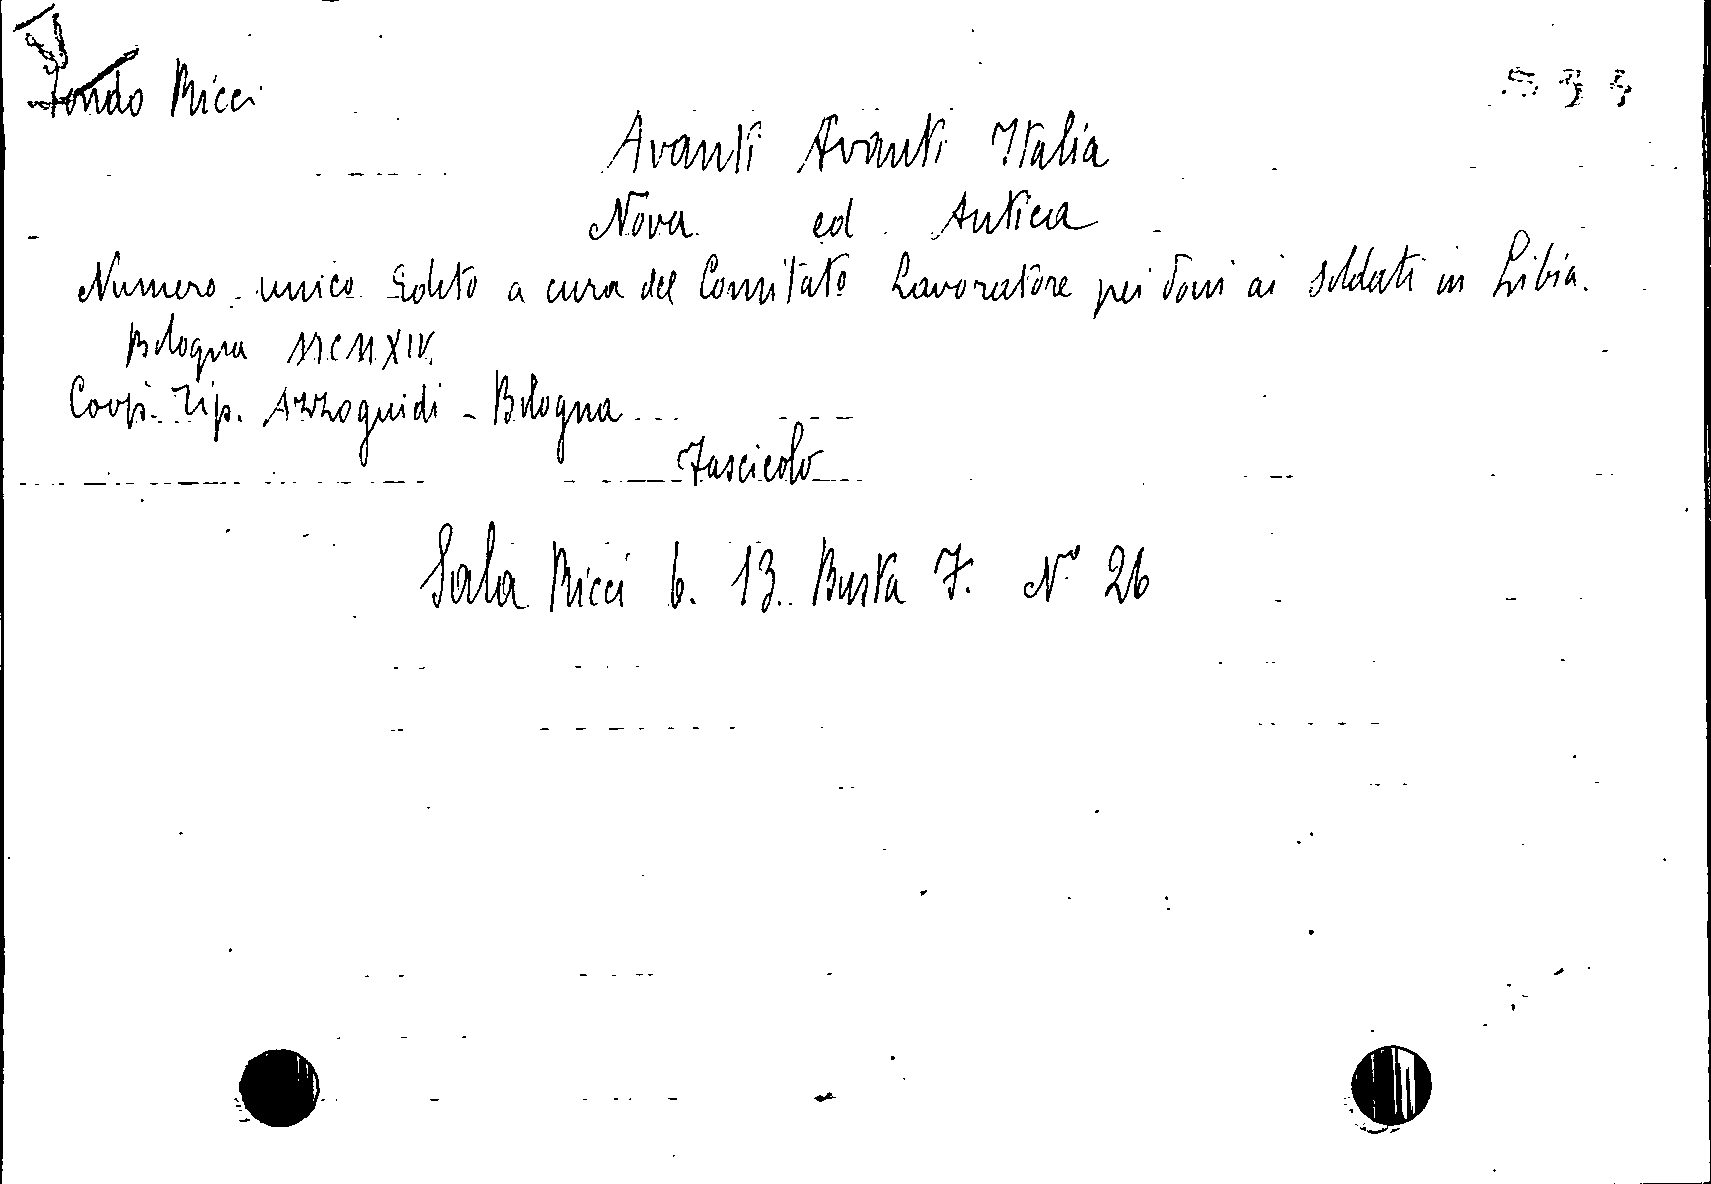 Fondo Ricci
533
Avanti Avanti Italia
Nova ed Antica
Numero unico Edito a cura del Comitato Lavoratore pei doni ai soldati in Libia.
Bologna MCMXIV.
Coop. Tip. Azzoguidi - Bologna
Fascicolo
Sala Ricci b. 13. Busta 7. N° 26